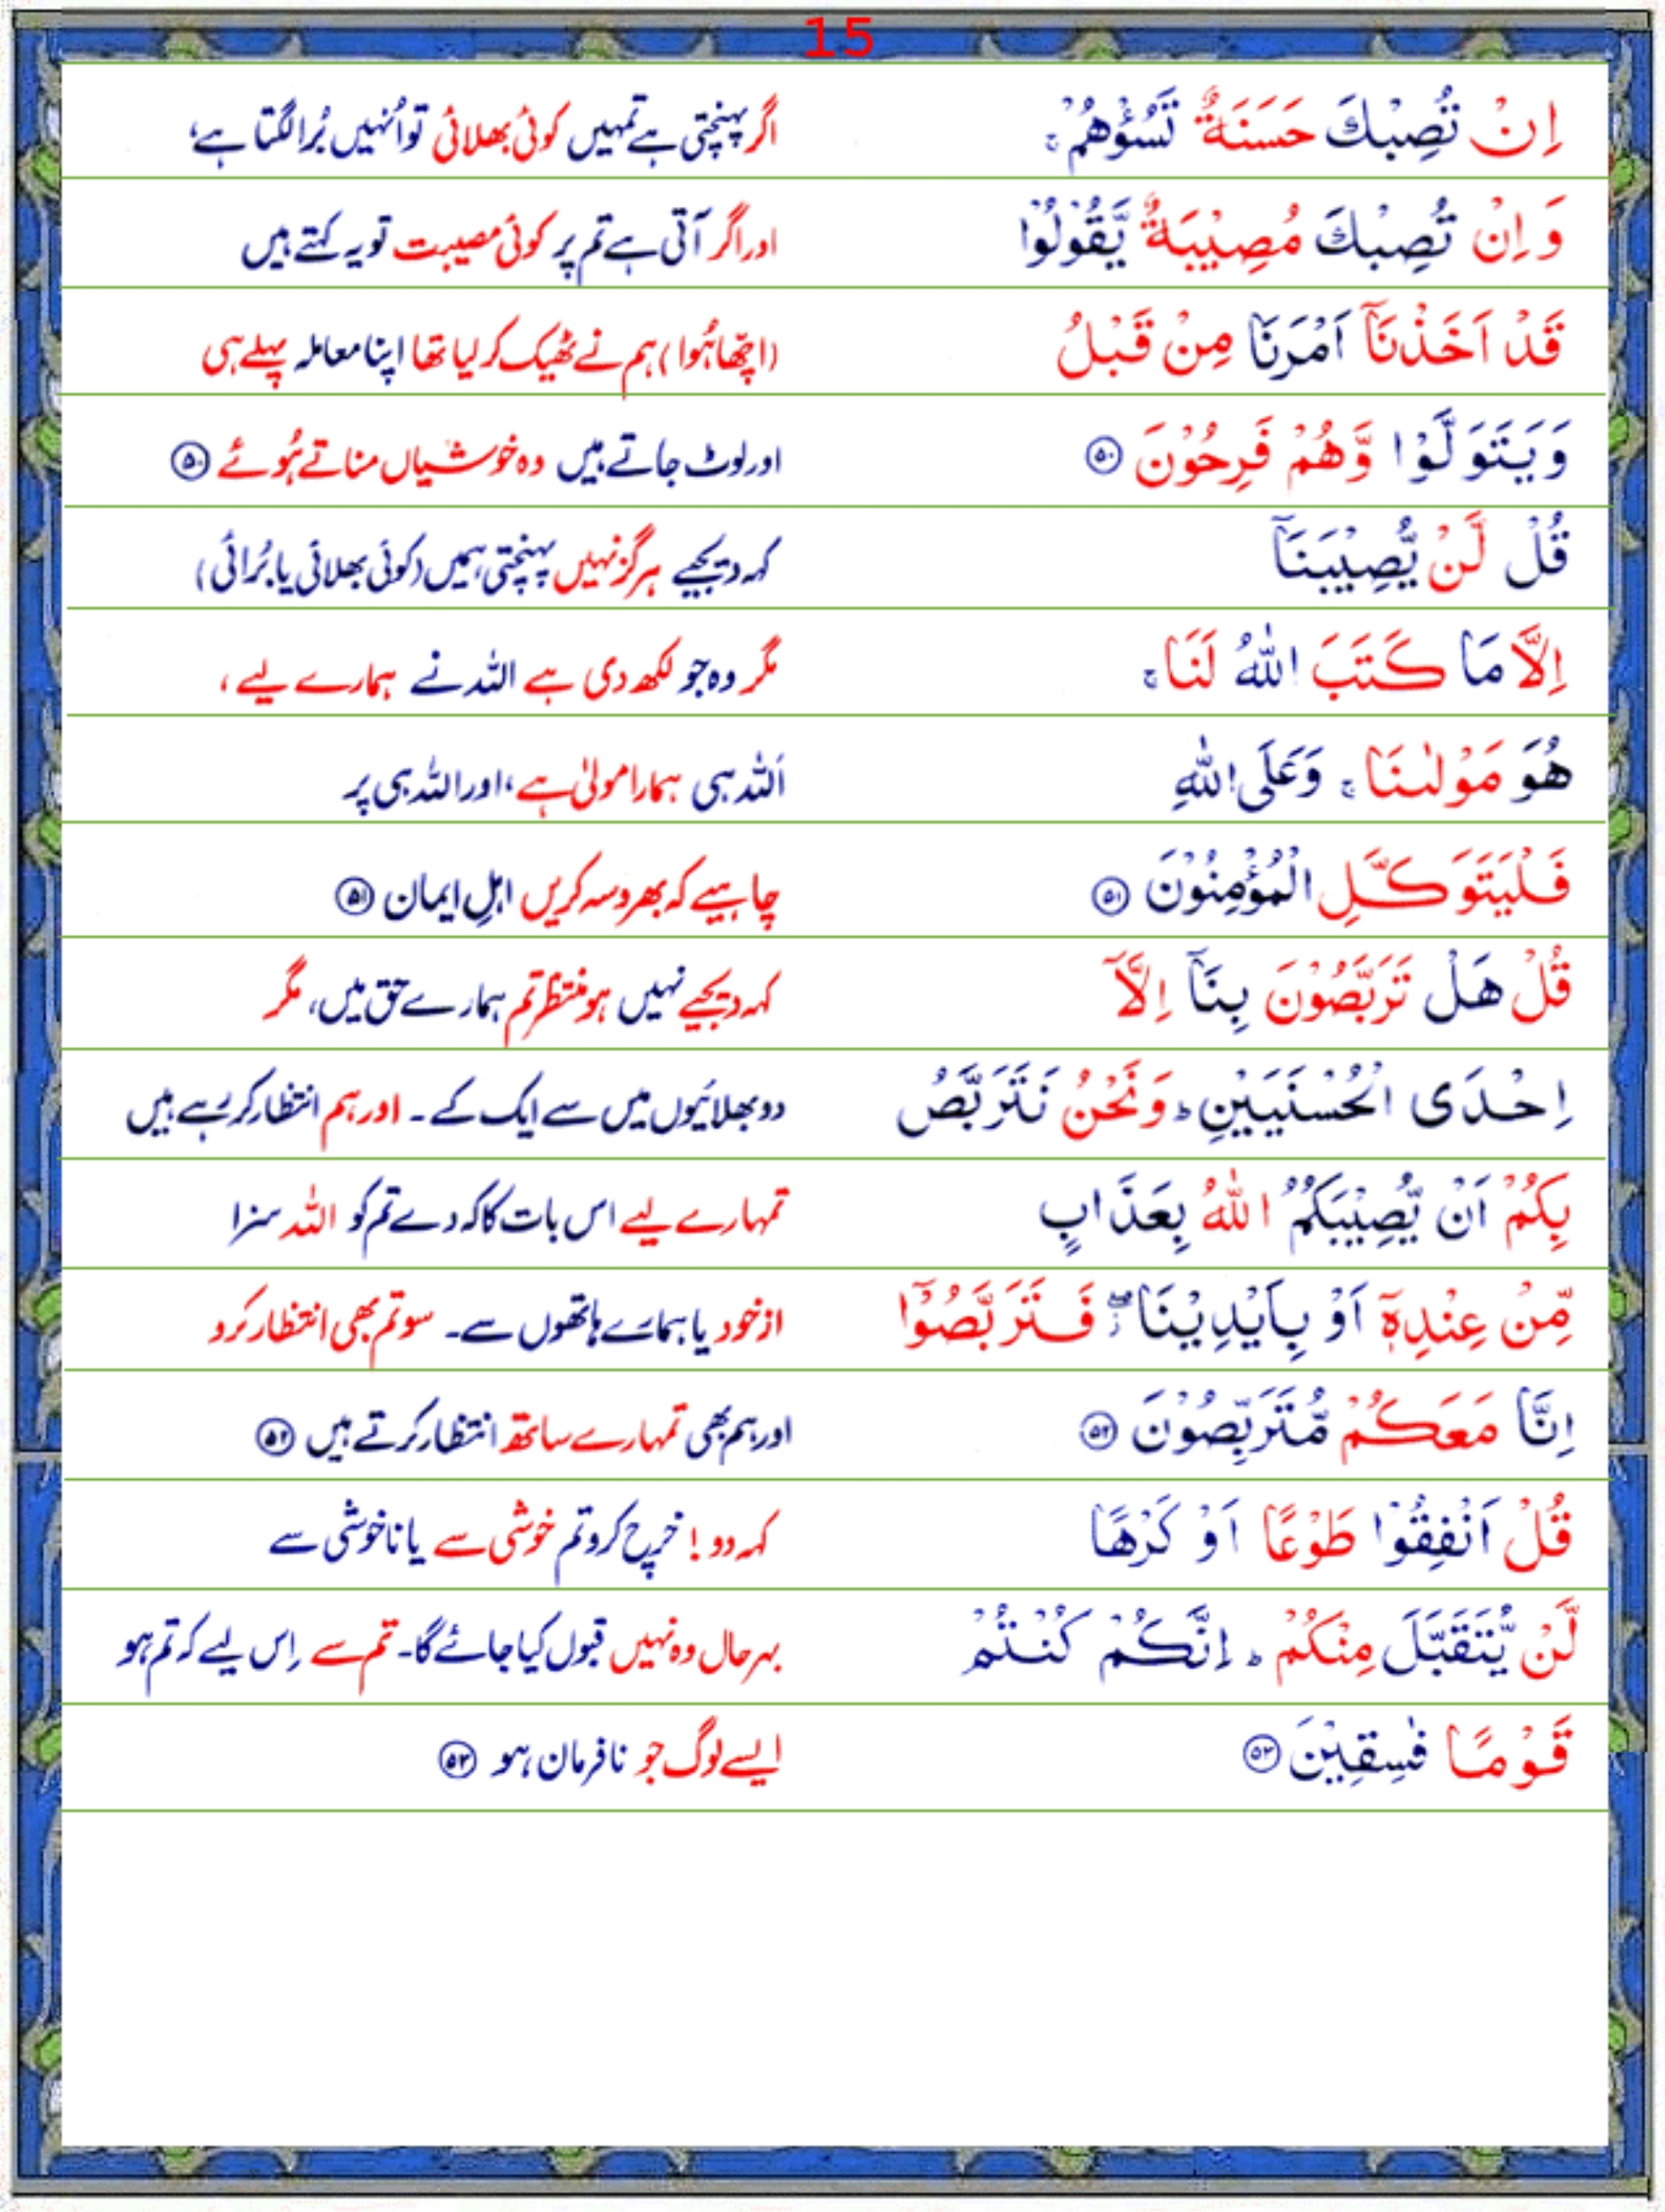 15
اِنْ تُصِبْكَ حَسَنَةٌ تَسُؤْهُمْ ۚ اگر پہنچتی ہے تمہیں کوئی بھلائی تو اُنہیں بُرا لگتا ہے،
وَاِنْ تُصِبْكَ مُصِيْبَةٌ يَّقُوْلُوْا اور اگر آتی ہے تم پر کوئی مصیبت تو یہ کہتے ہیں
قَدْ اَخَذْنَاۤ اَمْرَنَا مِنْ قَبْلُ (اچھا ہُوا) ہم نے ٹھیک کر لیا تھا اپنا معاملہ پہلے ہی
وَيَتَوَلَّوْا وَّهُمْ فَرِحُوْنَ ۵۰ اور لوٹ جاتے ہیں وہ خوشیاں مناتے ہُوئے ۵۰
قُلْ لَّنْ يُّصِيْبَنَاۤ کہہ دیجیے ہرگز نہیں پہنچتی ہمیں (کوئی بھلائی یا بُرائی)
اِلَّا مَا كَتَبَ اللّٰهُ لَنَا ۚ مگر وہ جو لکھ دی ہے اللہ نے ہمارے لیے ،
هُوَ مَوْلٰىنَا ۚ وَعَلَى اللّٰهِ اَللہ ہی ہمارا مولیٰ ہے، اور اللہ ہی پر
فَلْيَتَوَكَّلِ الْمُؤْمِنُوْنَ ۵۱ چاہیے کہ بھروسہ کریں اہلِ ایمان ۵۱
قُلْ هَلْ تَرَبَّصُوْنَ بِنَاۤ اِلَّاۤ کہہ دیجیے نہیں ہو منتظر تم ہمارے حق میں، مگر
اِحْدَى الْحُسْنَيَيْنِ ؕ وَنَحْنُ نَتَرَبَّصُ دو بھلائیوں میں سے ایک کے ۔ اور ہم انتظار کر رہے ہیں
بِكُمْ اَنْ يُّصِيْبَكُمُ اللّٰهُ بِعَذَابٍ تمہارے لیے اس بات کا کہ دے تم کو اللہ سزا
مِّنْ عِنْدِهٖۤ اَوْ بِاَيْدِيْنَا ۖؗ فَتَرَبَّصُوْۤا از خود یا ہمارے ہاتھوں سے۔ سو تم بھی انتظار کرو
اِنَّا مَعَكُمْ مُّتَرَبِّصُوْنَ ۵۲ اور ہم بھی تمہارے ساتھ انتظار کرتے ہیں ۵۲
قُلْ اَنْفِقُوْا طَوْعًا اَوْ كَرْهًا کہہ دو ! خرچ کرو تم خوشی سے یا ناخوشی سے
لَّنْ يُّتَقَبَّلَ مِنْكُمْ ؕ اِنَّكُمْ كُنْتُمْ بہرحال وہ نہیں قبول کیا جائے گا۔ تم سے اِس لیے کہ تم ہو
قَوْمًا فٰسِقِيْنَ ۵۳ ایسے لوگ جو نافرمان ہو ۵۳